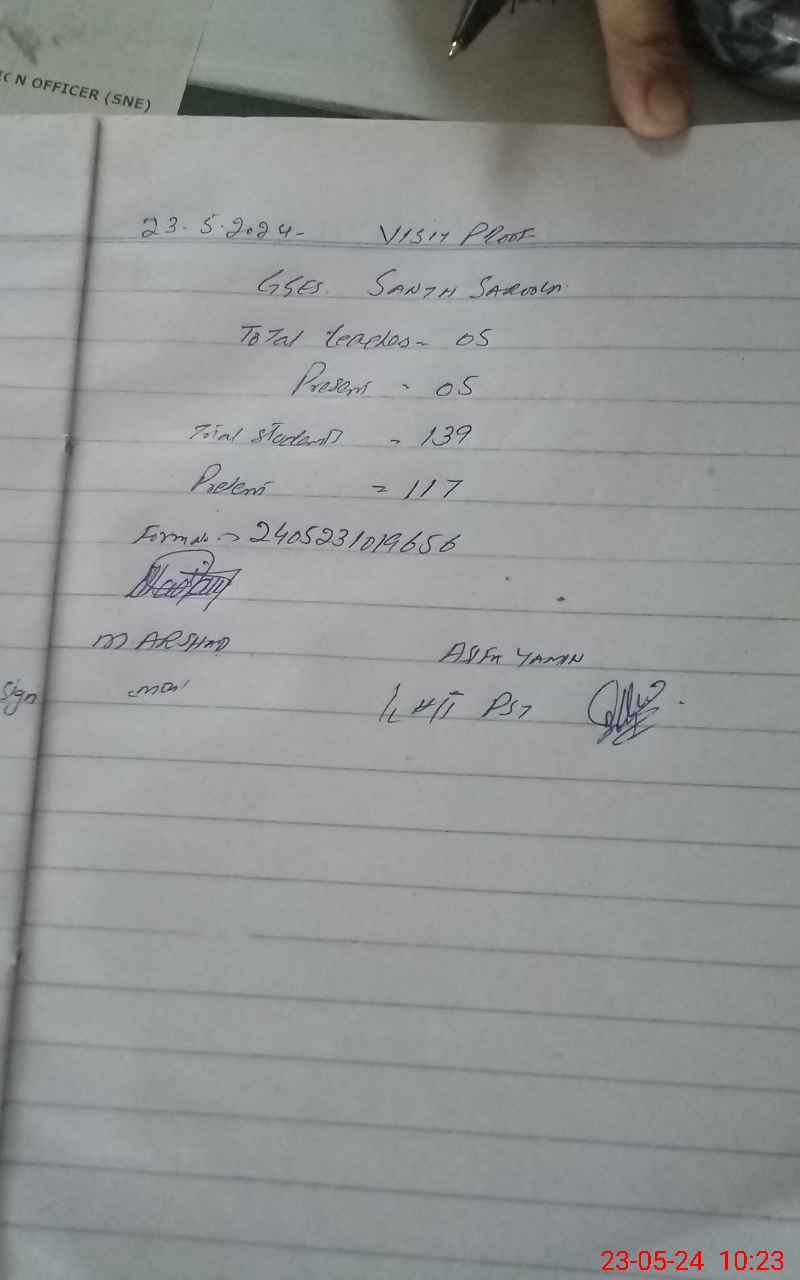 N OFFICER (SNE)
23.5.2024- VISIT PROOF
GSES. SANJH SAROOLA
Total teaches - 05
Present - 05
Total students - 139
Present = 117
Form no -> 2405231019656
M ARSHAD
ASFA YAMIN
Sign
PST
23-05-24 10:23